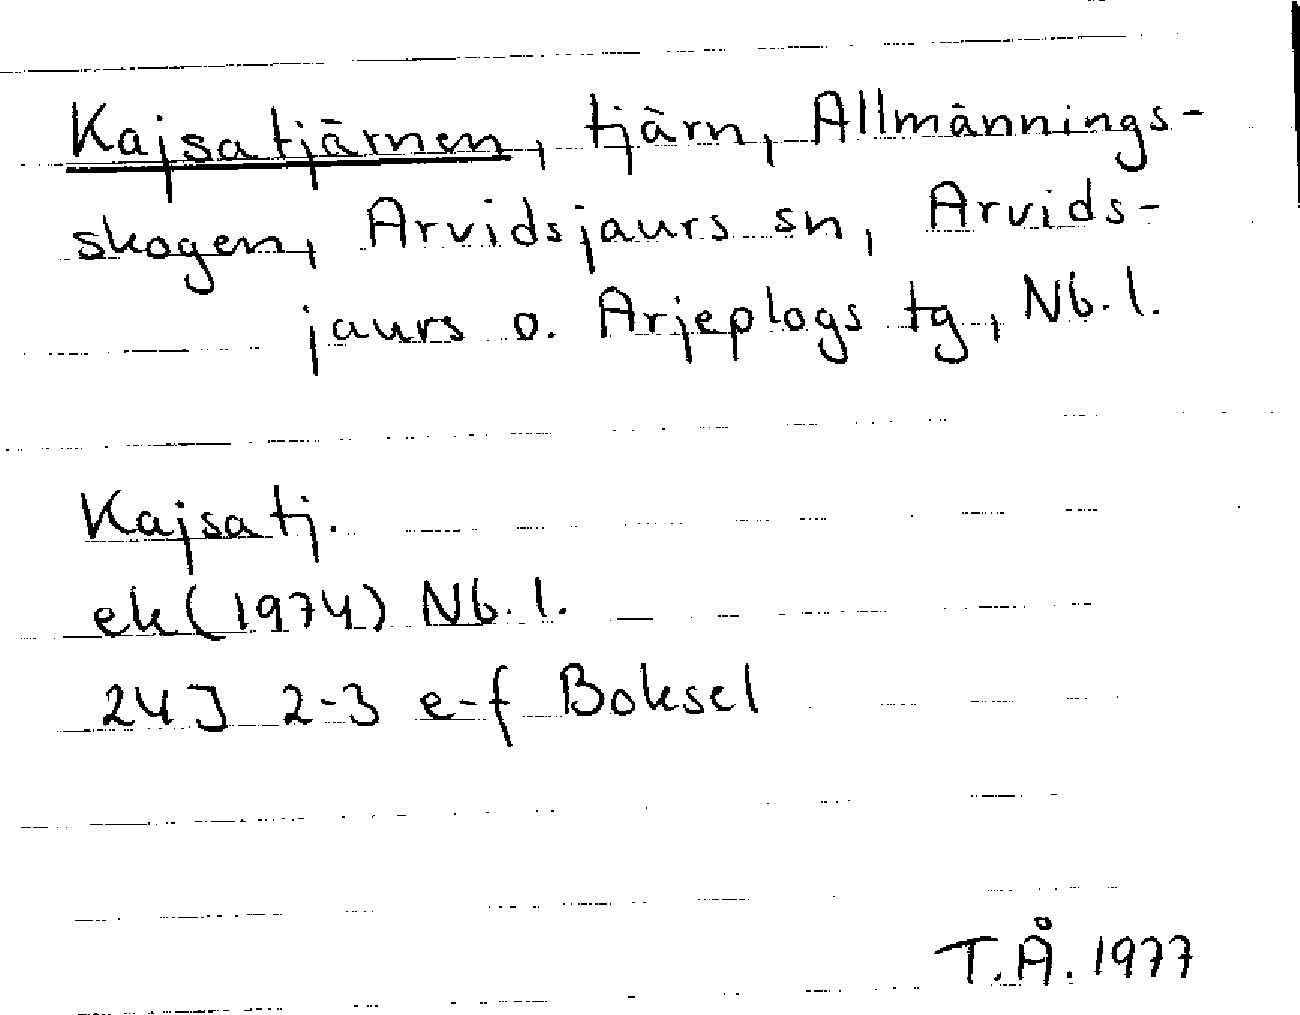 Kajsatjärnen, tjärn, Allmännings-
skogen, Arvidsjaurs sn, Arvids-
jaurs o. Arjeplogs tg, Nb. l.
Kajsatj.
ek (1974) Nb. l.
24J 2-3 e-f Boksel
T.Å. 1977